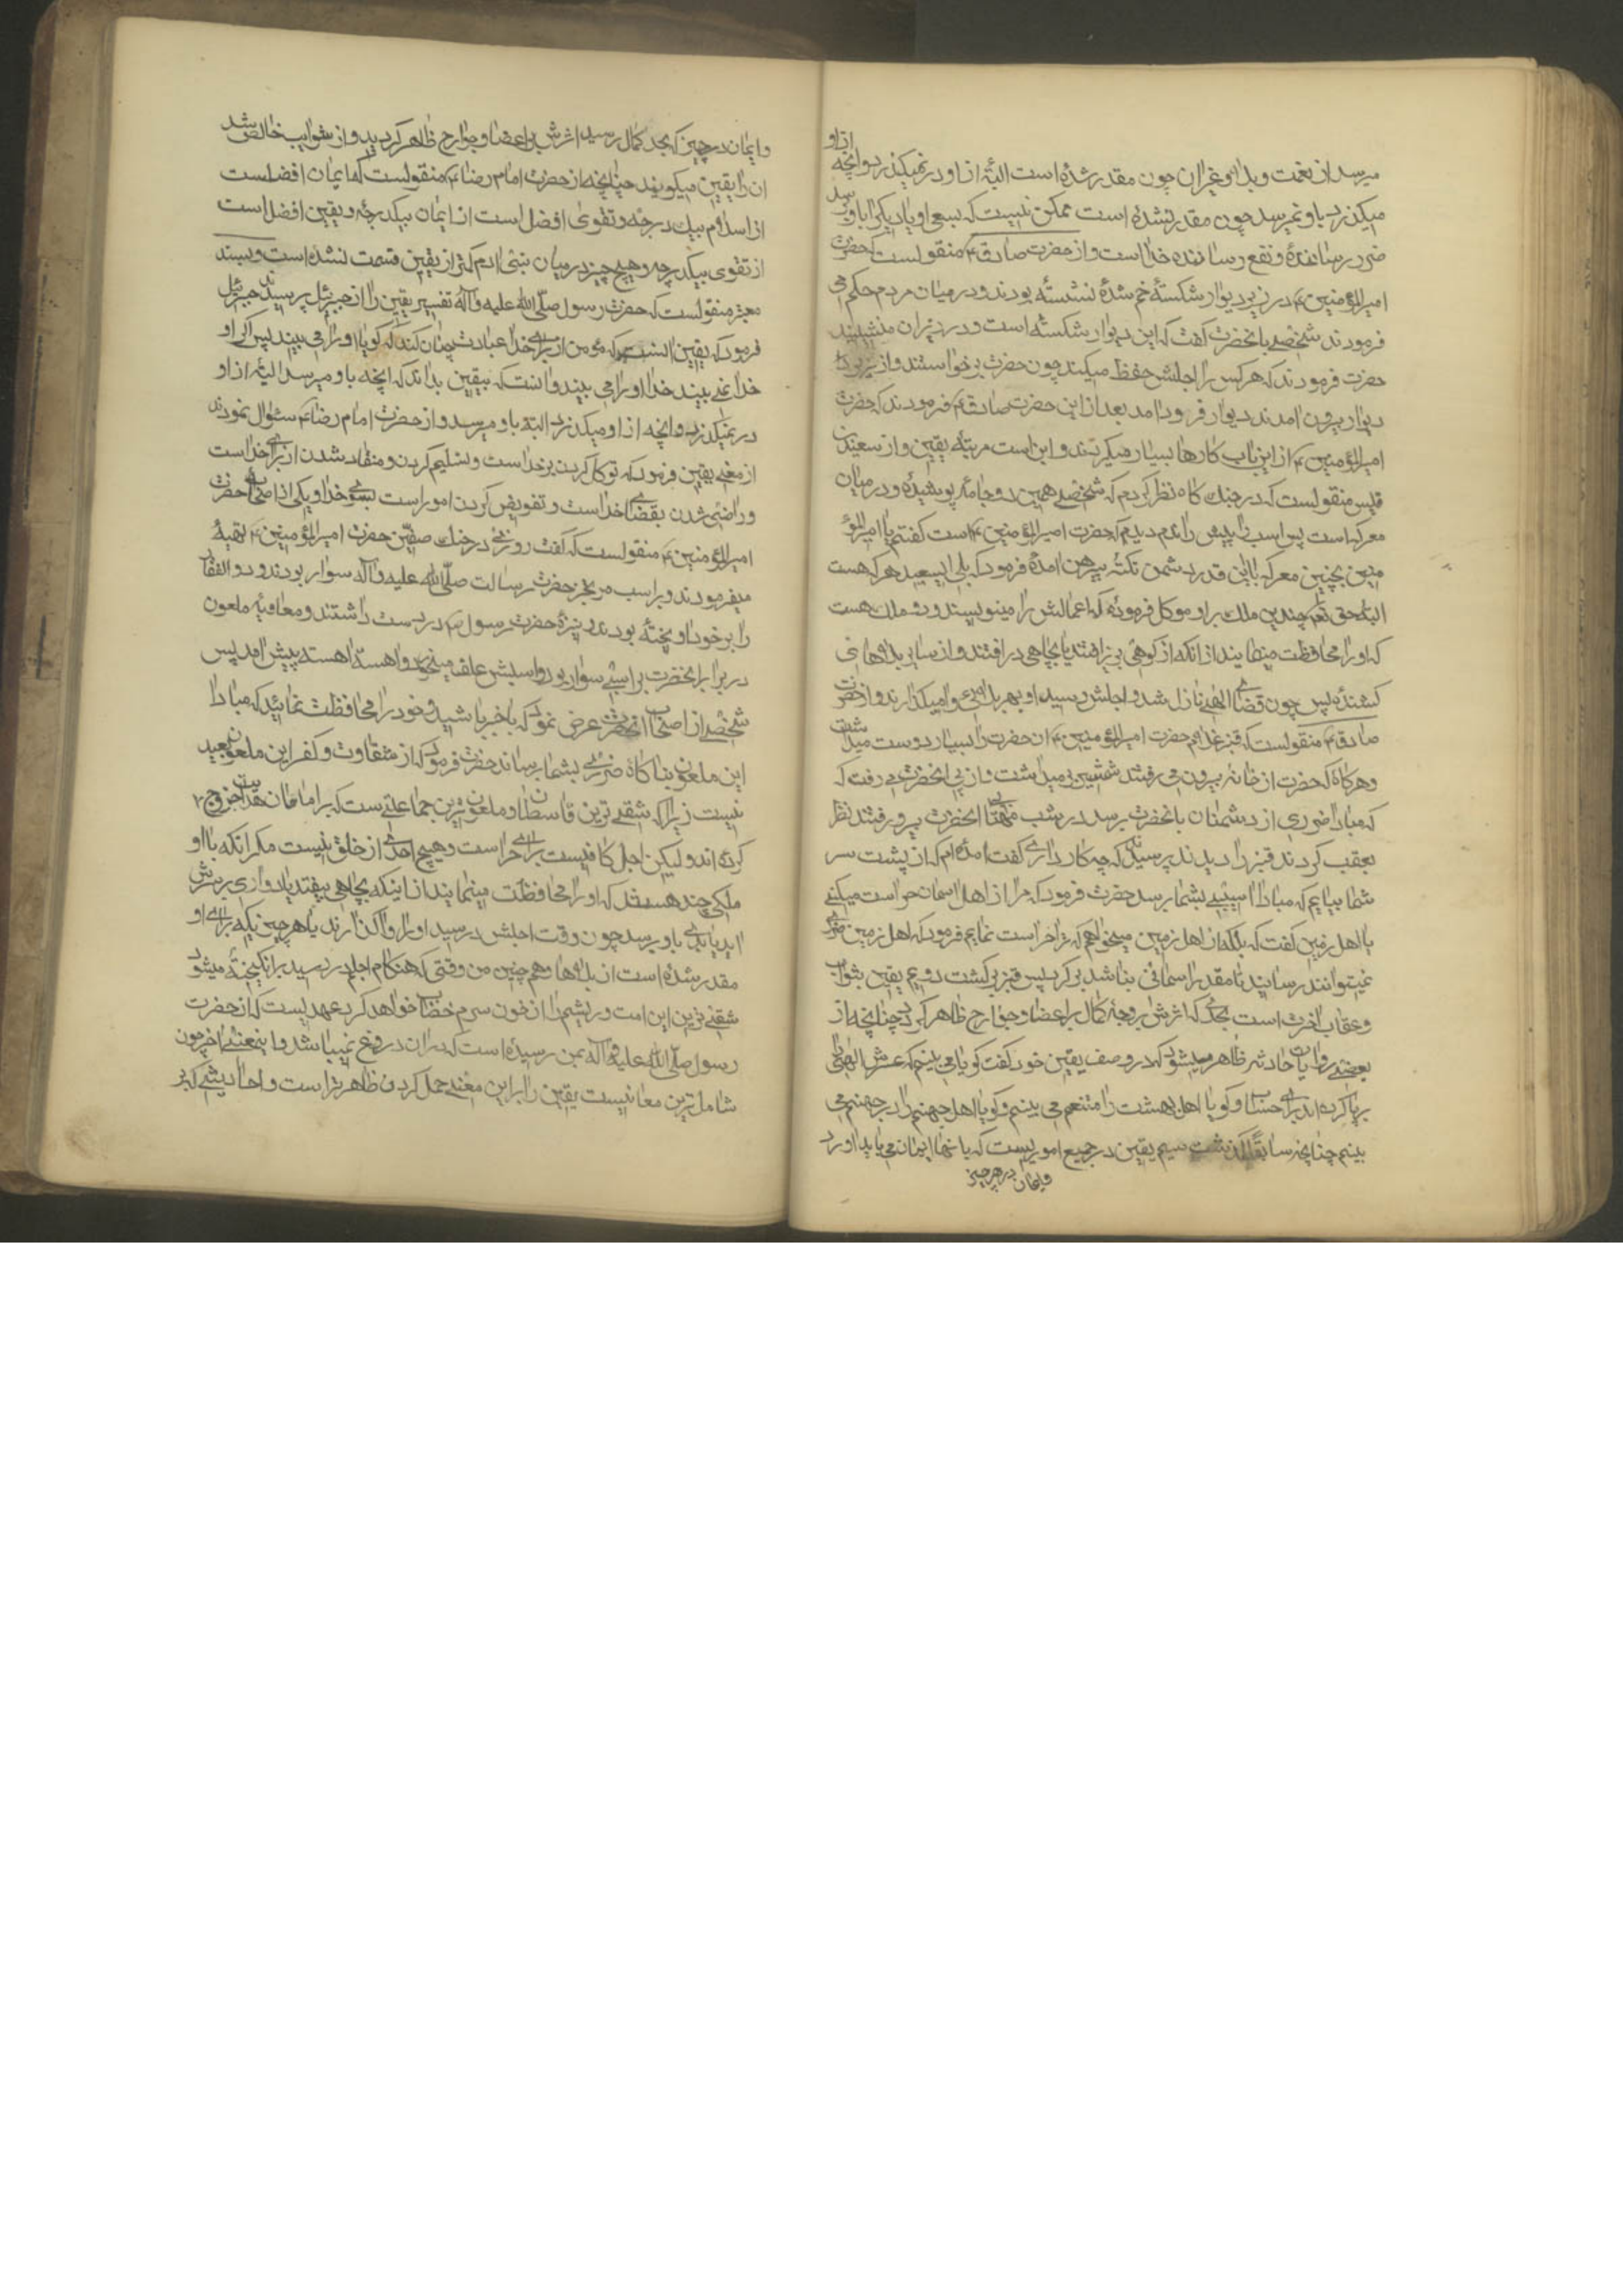 از او
میرسد از نعمت و بلا و غیر ان چون مقدر شده است البته از او در نمیکذرد و انچه
میکذرد باو نمیرسد چون مقدر نشده است ممکن نیست که بسعی او یا دیکری باو برسد
ضرر رساننده و نفع رساننده خداست و از حضرت صادق ع منقولست که حضرت
امیرالمؤمنین ع در زیر دیوار شکستهٔ خم شدهٔ نشسته بودند و در میان مردم حکم می
فرمودند شخصی بانحضرت کفت که این دیوار شکسته است و در زیر ان منشینید
حضرت فرمودند که هر کس را اجلش حفظ میکند چون حضرت برخواستند و از زیر
دیوار بیرون امدند دیوار فرود امد بعد از این حضرت صادق ع فرمودند که حضرت
امیرالمؤمنین ع از این باب کارها بسیار میکردند و این است مرتبه یقین و از سعید بن
قیس منقولست که در جنک کاه نظر کردم که شخصی همین دو جامه پوشیده و در میان
معرکه است پس اسب را پیش راندم دیدم که حضرت امیرالمؤمنین ع است کفتم یا امیرالمؤ
منین بچنین معرکه با این قدر دشمن یکته پیرهن امدهٔ فرمود که بلی ایسعید هر که هست
البته حق تعالی چندین ملک بر او موکل فرموده که اعمالش را مینویسند و دو ملک هست
که او را محافظت مینمایند از انکه از کوهی بزیر افتد یا بچاهی در افتد و از سایر بلاهای
کشنده پس چون قضای الهی نازل شد و اجلش رسید او بهر بلائی وامیکذارند و از حضرت
صادق ع منقولست که قنبر غلام حضرت امیرالمؤمنین ع ان حضرت را بسیار دوست میداشت
و هر کاه که حضرت از خانه بیرون می رفتند شمشیر بر میداشت و از پی انحضرت می رفت که
که مبادا ضرری از دشمنان بانحضرت برسد در شب مهتابی انحضرت بیرون رفتند نظر
بعقب کردند قنبر را دیدند پرسیدند که چه کار داری کفت امده ام که از پشت سر
شما بیایم که مبادا اسیبی بشما برسد حضرت فرمود که مرا از اهل اسمان حراست میکنی
یا اهل زمین کفت که بلکه از اهل زمین میخواهم که ترا حراست نمایم فرمود که اهل زمین ضرری
نمیتوانند رسانید تا مقدر اسمانی نباشد برکرد پس قنبر برکشت دویم یقین بثواب
و عقاب اخرت است بحدی که اثرش بر وجهٔ کمال بر اعضا و جوارح ظاهر کردد چنانچه از
بعضی روایات حارثه ظاهر میشود که در وصف یقین خود کفت کویا می بینم که عرش الهی را
برپا کرده اند برای حساب و کویا اهل بهشت را متنعم می بینم و کویا اهل جهنم را در جهنم می
بینم چنانچه سابقا کذشت سیم یقین در جمیع اموریست که بانها ایمان می باید اورد
و ایمان در هر چیز
و ایمان در چیز که بحد کمال رسید اثرش بر اعضا و جوارح ظاهر کردید و از شوایب خالص شد
ان را یقین میکویند چنانچه از حضرت امام رضا ع منقولست که ایمان افضلست
از اسلام بیک درجه و تقوی افضل است از ایمان بیکدرجه و یقین افضل است
از تقوی بیکدرجه و هیچ چیز در میان بنی ادم کمتر از یقین قسمت نشده است و بسند
معتبر منقولست که حضرت رسول صلّی الله علیه و آله تفسیر یقین را از جبرئیل پرسیدند جبرئیل
فرمود که یقین انست که مؤمن از برای خدا عبادت چنان کند که کویا او را می بیند پس اکر او
خدا نمی بیند خدا او را می بیند و انست که بیقین بداند که انچه باو میرسد البته از او
در نمیکذرد و انچه از او میکذرد البته باو نمیرسد و از حضرت امام رضا ع سئوال نمودند
از معنی یقین فرمود که توکل کردن بر خداست و تسلیم کردن و منقاد شدن از برای خداست
و راضی شدن بقضای خداست و تفویض کردن امور است بسوی خدا و یکی از اصحاب حضرت
امیرالمؤمنین ع منقولست که کفت روزی در جنک صفّین حضرت امیرالمؤمنین ع
میفرمودند و بر اسب مرتجز حضرت رسالت صلّی الله علیه و آله سوار بودند و ذوالفقار
را بر خود اویخته بودند و نیزهٔ حضرت رسول ص در دست داشتند و معاویه ملعون
در برابر انحضرت بر اسبی سوار بود و اسبش علف میخورد و اهسته اهسته پیش امد پس
شخصی از اصحاب انحضرت عرض نمود که با خبر باشید و خود را محافظت نمائید که مبادا
این ملعون بناکاه ضرری بشما برساند حضرت فرمود که از شقاوت و کفر این ملعون بعید
نیست زیرا که شقی ترین قاسطان و ملعون ترین جماعتی ست که بر امامان هدایت خروج
کرده اند ولیکن اجل کافیست برای حراست و هیچ احدی از خلق نیست مکر انکه با او
ملکی چند هستند که او را محافظت مینمایند از اینکه بچاهی بیفتد یا دیواری بر سرش
اید یا بدی باو برسد چون وقت اجلش در رسید او را واکذارند با هر چیزیکه برای او
مقدر شده است از بلاها و هم چنین من وقتی که هنکام اجلم در رسید برانکیخته میشود
شقی ترین این امت و ریشم را از خون سرم خضاب خواهد کرد عهدیست که از حضرت
رسول صلّی الله علیه و آله بمن رسیده است که در ان دروغ نمیباشد و اینمعنی اخر چون
شامل ترین معانیست یقین را بر این معنی حمل کردن ظاهر تر است و احادیثی که بر